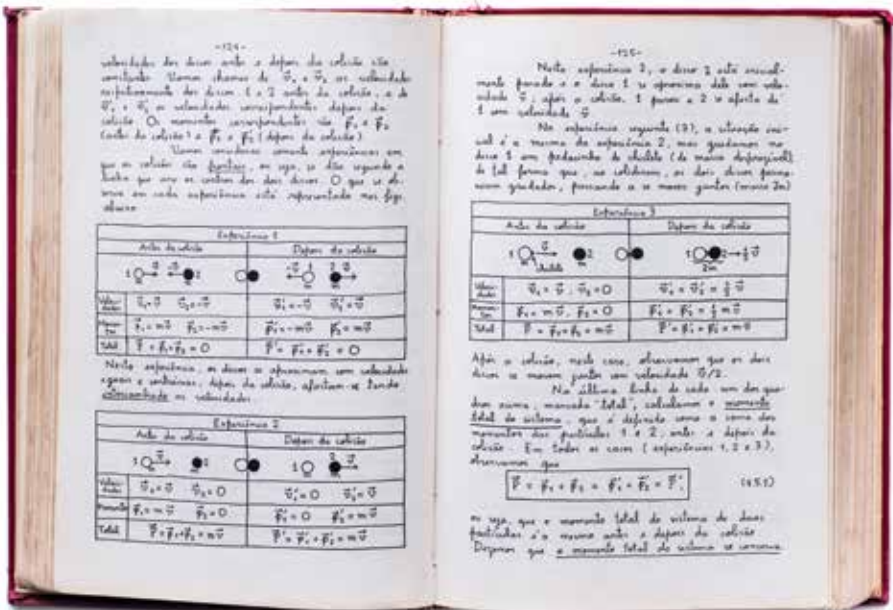 -124-
velocidades dos discos antes e depois da colisão são
constantes. Vamos chamar de v⃗₁ e v⃗₂ as velocidades
respectivamente dos discos 1 e 2 antes da colisão, e de
v⃗'₁ e v⃗'₂ as velocidades correspondentes depois da
colisão. Os momentos correspondentes são p⃗₁ e p⃗₂
(antes da colisão) e p⃗'₁ e p⃗'₂ (depois da colisão)
Vamos considerar somente experiências em
que as colisões são frontais, ou seja, se dão segundo a
linha que une os centros dos dois discos. O que se ob-
serva em cada experiência está representado nas figs.
abaixo
Experiência 1
Antes da colisão Depois da colisão
1 v⃗ -v⃗ 2 -v⃗ 1 2 v⃗
m m m m
Veloci-dades v⃗₁=v⃗ v⃗₂=-v⃗ v⃗'₁=-v⃗ v⃗'₂=v⃗
Momen-tos p⃗₁=mv⃗ p⃗₂=-mv⃗ p⃗'₁=-mv⃗ p⃗'₂=mv⃗
Total P⃗=p⃗₁+p⃗₂=0 P⃗'=p⃗'₁+p⃗'₂=0
Nesta experiência, os discos se aproximam com velocidades
iguais e contrárias; depois da colisão, afastam-se tendo
intercambiado as velocidades
Experiência 2
Antes da colisão Depois da colisão
1 v⃗ 2 1 2 v⃗
m m m m
Veloci-dades v⃗₁=v⃗ v⃗₂=0 v⃗'₁=0 v⃗'₂=v⃗
Momento p⃗₁=mv⃗ p⃗₂=0 p⃗'₁=0 p⃗'₂=mv⃗
Total P⃗=p⃗₁+p⃗₂=mv⃗ P⃗'=p⃗'₁+p⃗'₂=mv⃗
-125-
Nesta experiência 2, o disco 2 está inicial-
mente parado e o disco 1 se aproxima dele com velo-
cidade v⃗; após a colisão, 1 para e 2 se afasta de
1 com velocidade v⃗
Na experiência seguinte (3), a situação ini-
cial é a mesma da experiência 2, mas grudamos no
disco 1 um pedacinho de chiclete (de massa desprezível)
de tal forma que, ao colidirem, os dois discos perma-
necem grudados, passando a se mover juntos (massa 2m)
Experiência 3
Antes da colisão Depois da colisão
1 v⃗ 2 1 2 → ½ v⃗
m chiclete m 2m
Veloci-dades v⃗₁=v⃗, v⃗₂=0 v⃗'₁=v⃗'₂=½ v⃗
Momen-tos p⃗₁=mv⃗, p⃗₂=0 p⃗'₁=p⃗'₂=½ mv⃗
Total P⃗=p⃗₁+p⃗₂=mv⃗ P⃗'=p⃗'₁+p⃗'₂=mv⃗
Após a colisão, neste caso, observamos que os dois
discos se movem juntos com velocidade v⃗/2.
Na última linha de cada um dos qua-
dros acima, marcada "total", calculamos o momento
total do sistema, que é definido como a soma dos
momentos das partículas 1 e 2, antes e depois da
colisão. Em todos os casos (experiências 1, 2 e 3),
observamos que
P⃗ = p⃗₁ + p⃗₂ = p⃗'₁ + p⃗'₂ = P⃗', (4.5.1)
ou seja, que o momento total do sistema de duas
partículas é o mesmo antes e depois da colisão
Dizemos que o momento total do sistema se conserva